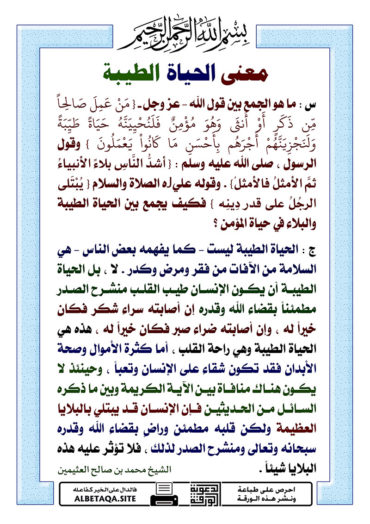 بسم الله الرحمن الرحيم
معنى الحياة الطيبة
س : ما هو الجمع بين قول الله - عز وجل - { مَنْ عَمِلَ صَالِحاً
مِّن ذَكَرٍ أَوْ أُنثَى وَهُوَ مُؤْمِنٌ فَلَنُحْيِيَنَّهُ حَيَاةً طَيِّبَةً
وَلَنَجْزِيَنَّهُمْ أَجْرَهُم بِأَحْسَنِ مَا كَانُواْ يَعْمَلُونَ } وقول
الرسول ، صلى الله عليه وسلم : { أشدُّ النَّاسِ بلاءً الأنبياءُ
ثمَّ الأمثلُ فالأمثلُ } . وقوله عليه الصلاة والسلام { يُبْتَلى
الرجلُ على قدر دينِه } فكيف يجمع بين الحياة الطيبة
والبلاء في حياة المؤمن ؟
ج : الحياة الطيبة ليست - كما يفهمه بعض الناس - هي
السلامة من الآفات من فقر ومرض وكدر . لا ، بل الحياة
الطيبة أن يكون الإنسان طيب القلب منشرح الصدر
مطمئناً بقضاء الله وقدره إن أصابته سراء شكر فكان
خيراً له ، وإن أصابته ضراء صبر فكان خيراً له ، هذه هي
الحياة الطيبة وهي راحة القلب ، أما كثرة الأموال وصحة
الأبدان فقد تكون شقاء على الإنسان وتعباً ، وحينئذ لا
يكون هناك منافاة بين الآية الكريمة وبين ما ذكره
السائل من الحديثين فإن الإنسان قد يبتلي بالبلايا
العظيمة ولكن قلبه مطمئن وراضٍ بقضاء الله وقدره
سبحانه وتعالى ومنشرح الصدر لذلك ، فلا تؤثر عليه هذه
البلايا شيئاً . الشيخ محمد بن صالح العثيمين
احرص على طباعة
ونشر هذه الورقة
الدعوية
الورقة
فالدال على الخير كفاعله
ALBETAQA.SITE